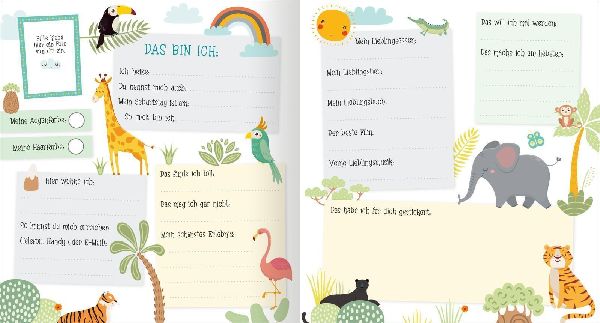 DAS BIN ICH:
Ich heiße:
Du nennst mich auch:
Mein Geburtstag ist am:
So sieht man mich:
Meine Augenfarbe:
Meine Haarfarbe:
Hier wohne ich:
So kannst du mich erreichen
(Telefon, Handy oder E-Mail):
Das finde ich toll:
Das mag ich gar nicht:
Mein schönstes Erlebnis:
Mein Lieblingsessen:
Mein Lieblingstier:
Mein Lieblingsbuch:
Der beste Film:
Meine Lieblingsmusik:
Das will ich mal werden:
Das mache ich am liebsten:
Das habe ich für dich gezeichnet: